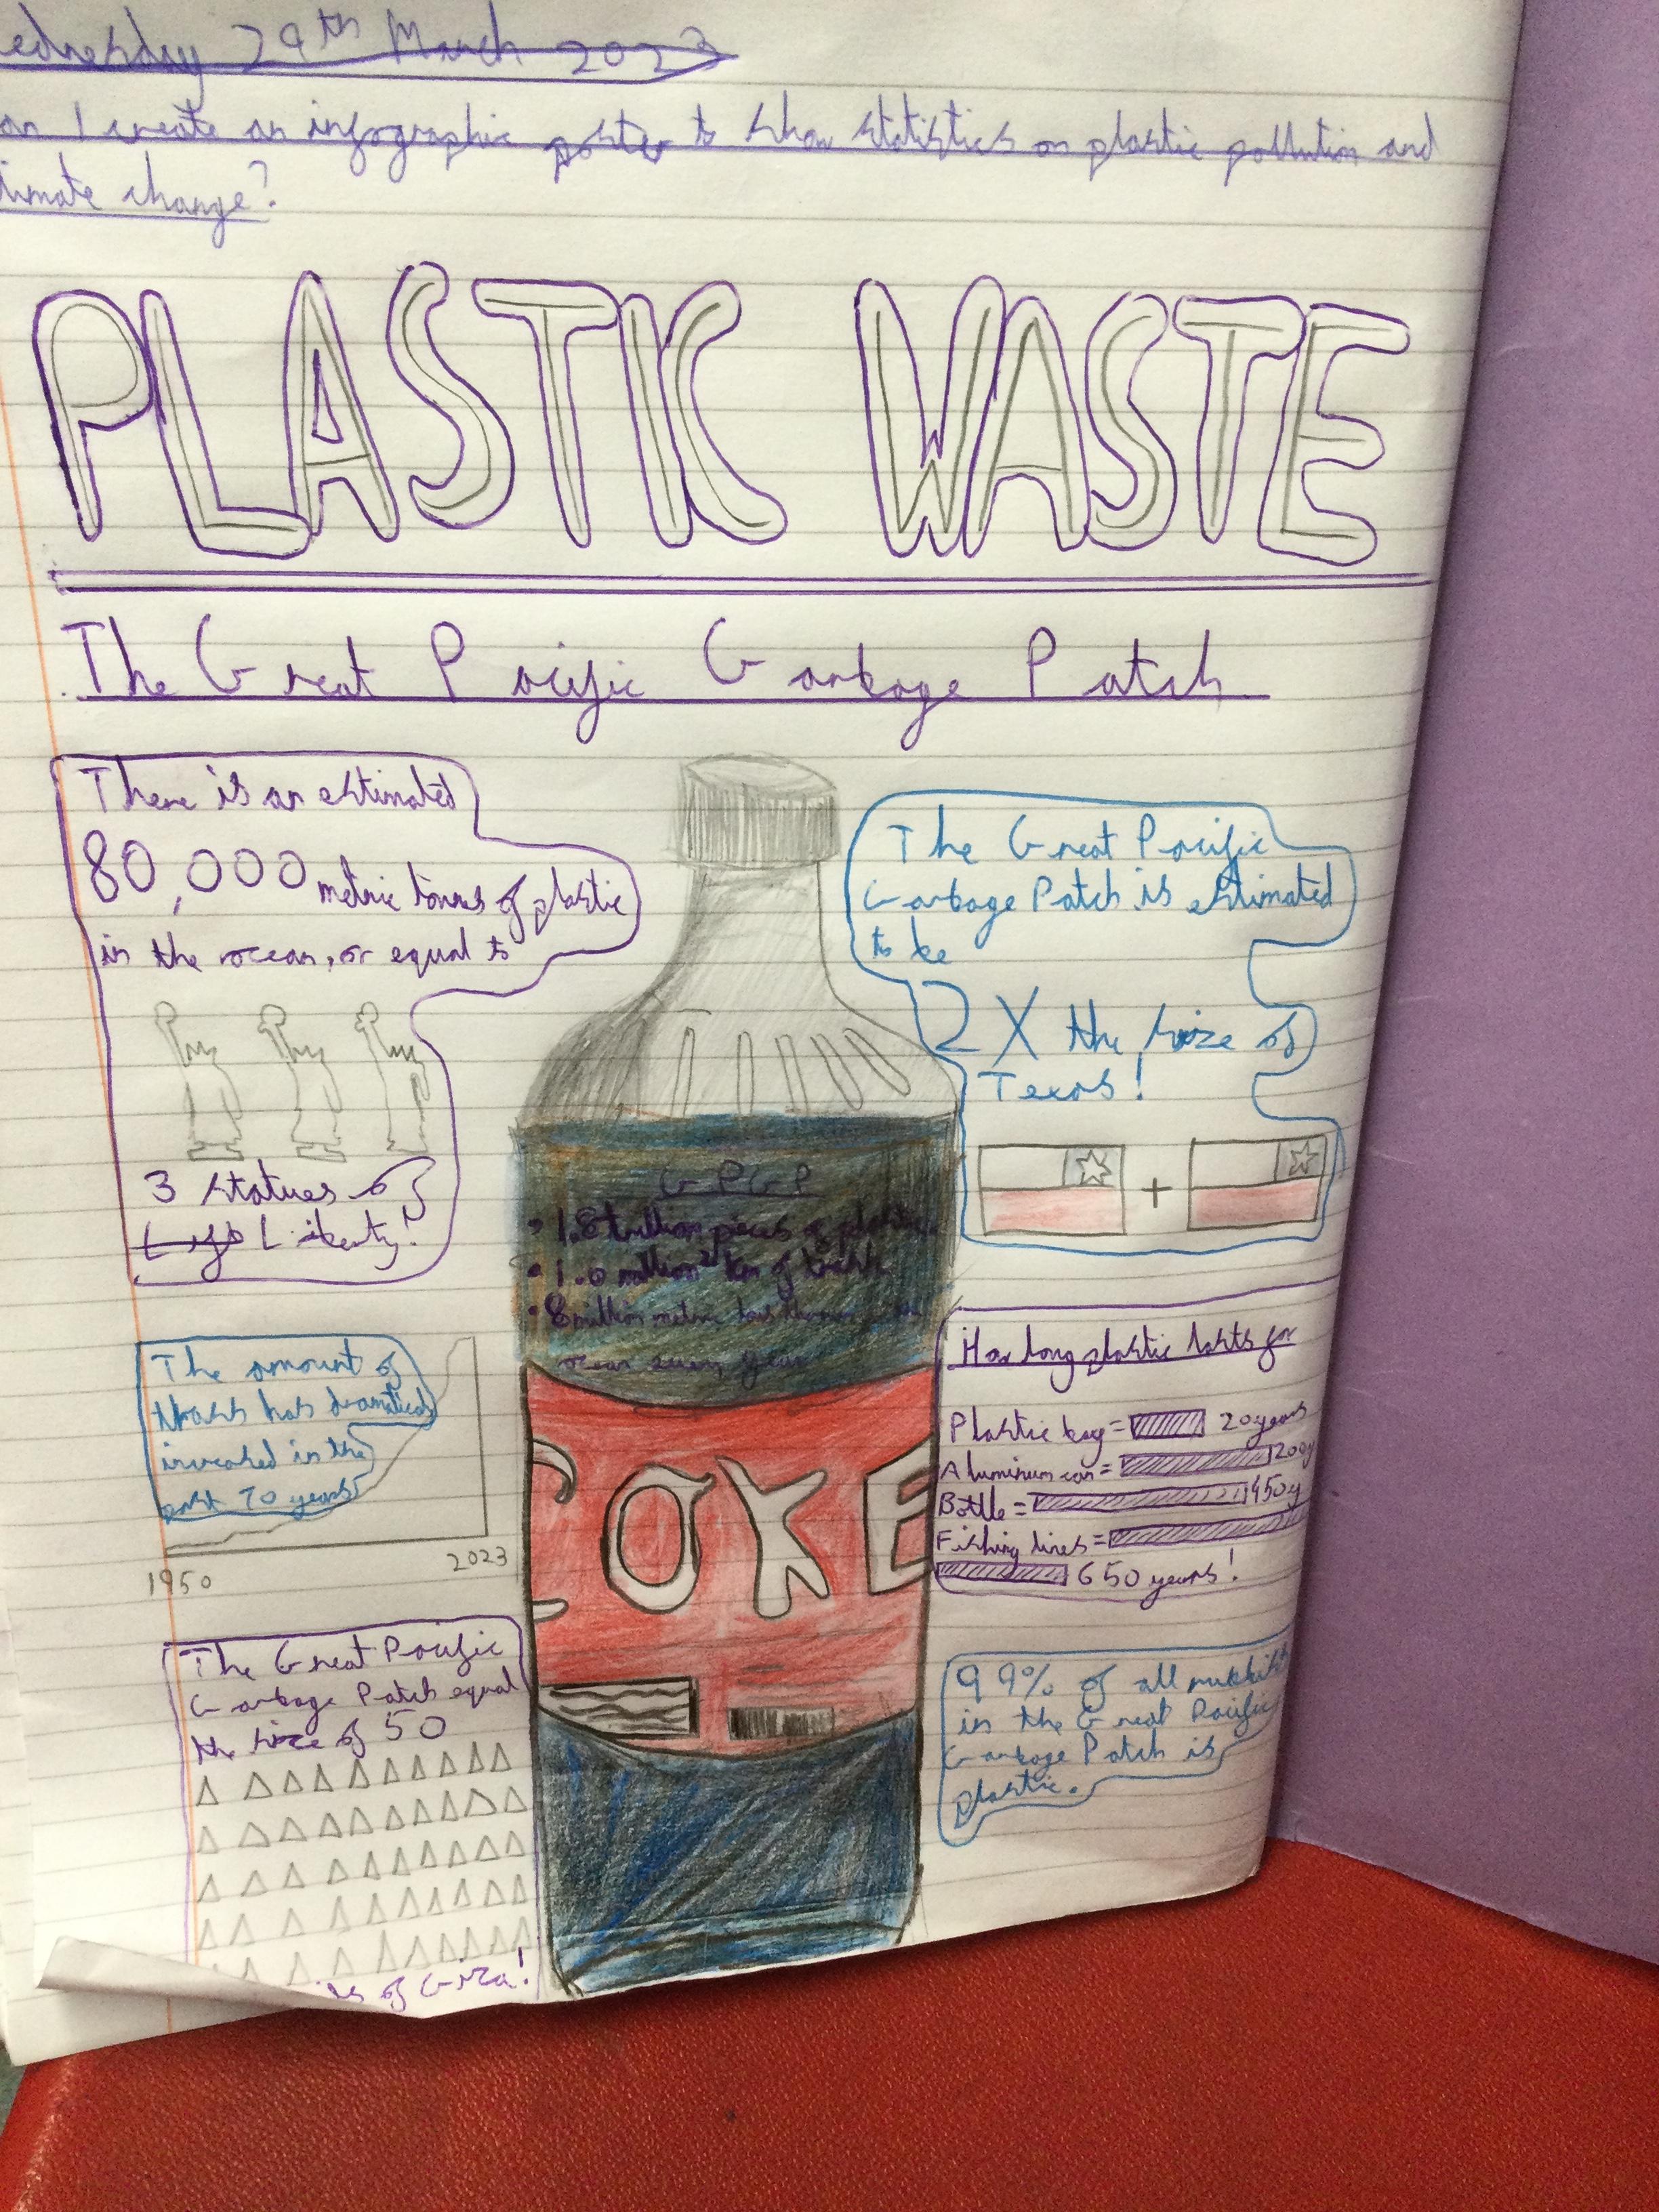 ednesday 29th March 2023
an I create an infographic poster to show statistics on plastic pollution and
limate change?
PLASTIC WASTE
The Great Pacific Garbage Patch
There is an estimated
80,000 metric tonnes of plastic
in the ocean, or equal to
3 statues of
Liberty!
The Great Pacific
Garbage Patch is estimated
to be
2X the size of
Texas!
+
GPGP
• 1.8 trillion pieces of plastic.
• 1.0 million² km of trash
• 8 million metric tons thrown
ocean every year
The amount of
trash has dramatically
increased in the
past 70 years
1950
2023
COKE
How long plastic lasts for
Plastic bag = 20 years
Aluminum can = 200y
Bottle = 450y
Fishing lines =
650 years!
The Great Pacific
Garbage Patch equal
the size of 50
of Giza!
99% of all rubbish
in the Great Pacific
Garbage Patch is
plastic.